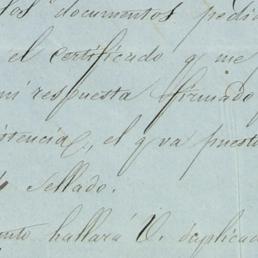 os documentos pedid
el certificado q me
mi respuesta firmado
istencia, el q va puesto
sellado.
ento hallará V. duplicad